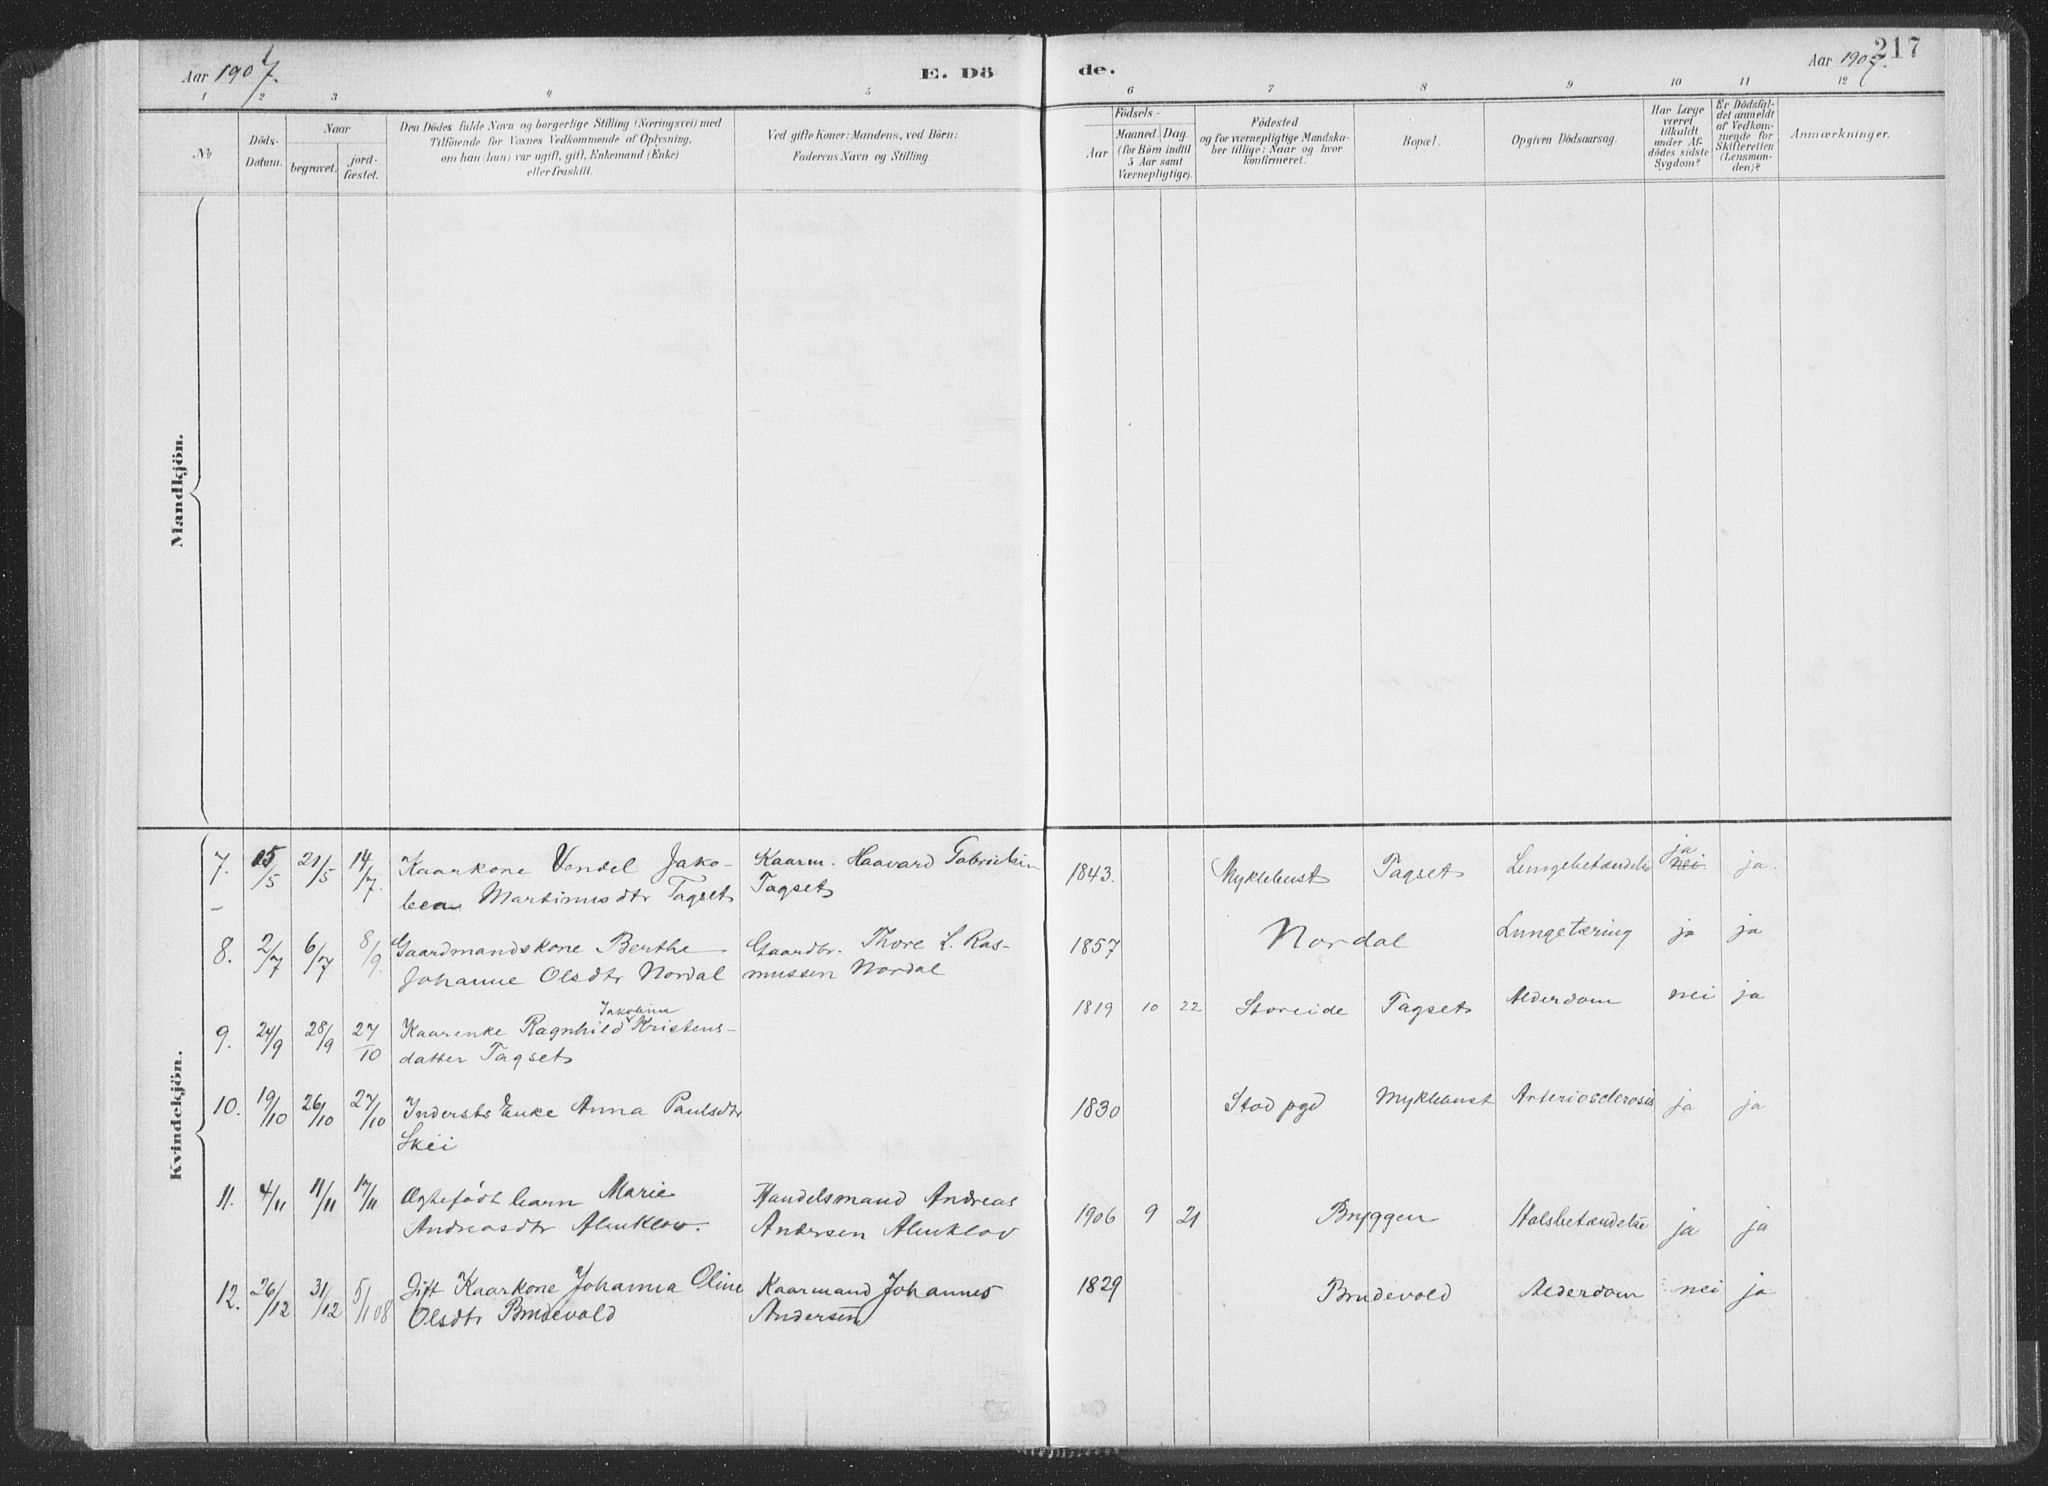 Aar 1907.
E. Dö
de.
Aar 1907.
217
1 2 3 4 5 6 7 8 9 10 11 12
No
Döds-
Datum.
Naar
begravet.
jord-
fæstet.
Den Dödes fulde Navn og borgerlige Stilling (Næringsvei) med
Tilföiende for Voxnes Vedkommende af Oplysning,
om han (hun) var ugift, gift, Enkemand (Enke)
eller fraskilt.
Ved gifte Koner: Mandens, ved Börn:
Faderens Navn og Stilling
Födsels-
Aar
Maaned. Dag.
(for Börn indtil
5 Aar samt
Værnepligtige).
Födested
og for værnepligtige Mandska-
ber tillige: Naar og hvor
konfirmeret.
Bopæl.
Opgiven Dödsaarsag.
Har Læge
været
tilkaldt
under Af-
dödes sidste
Sygdom?
Er Dödsfal-
det anmeldt
af Vedkom-
mende for
Skifteretten
(Lensman-
den)?
Anmærkninger.
Mandkjön.
Kvindekjön.
7. 15/5 21/5 14/7. Kaarkone Vendel Jako- Kaarm. Haavard Gabrielsen 1843. Myklebust Tagset Lungebetændelse ja nei ja.
bea Martinusdtr Tagset Tagset
8. 2/7 6/7 8/9. Gaardmandskone Berthe Gaardbr. Thore L. Ras- 1857 Nordal Lungetæring ja ja
Johanne Olsdtr Nordal mussen Nordal
9. 24/9 28/9 27/10 Kaarenke Ragnhild Jakobine Kristens- 1819 10 22 Storeide Tagset Alderdom nei ja
datter Tagset
10. 19/10 26/10 27/10 Indersts Enke Anna Paulsdtr 1830 Stod pgd Myklebust Arteriosclerosis ja ja
Skei
11. 4/11 11/11 17/11 Ægtefødt barn Marie Handelsmand Andreas 1906 9 21 Bryggen Halsbetændelse ja ja
Andreasdtr Almklov. Antersen Almklov
12. 26/12 31/12 5/1 08 Gift Kaarkone Johanna Oline Kaarmand Johannes 1829 Brudevold Alderdom nei ja
Olsdtr Brudevold Andersen